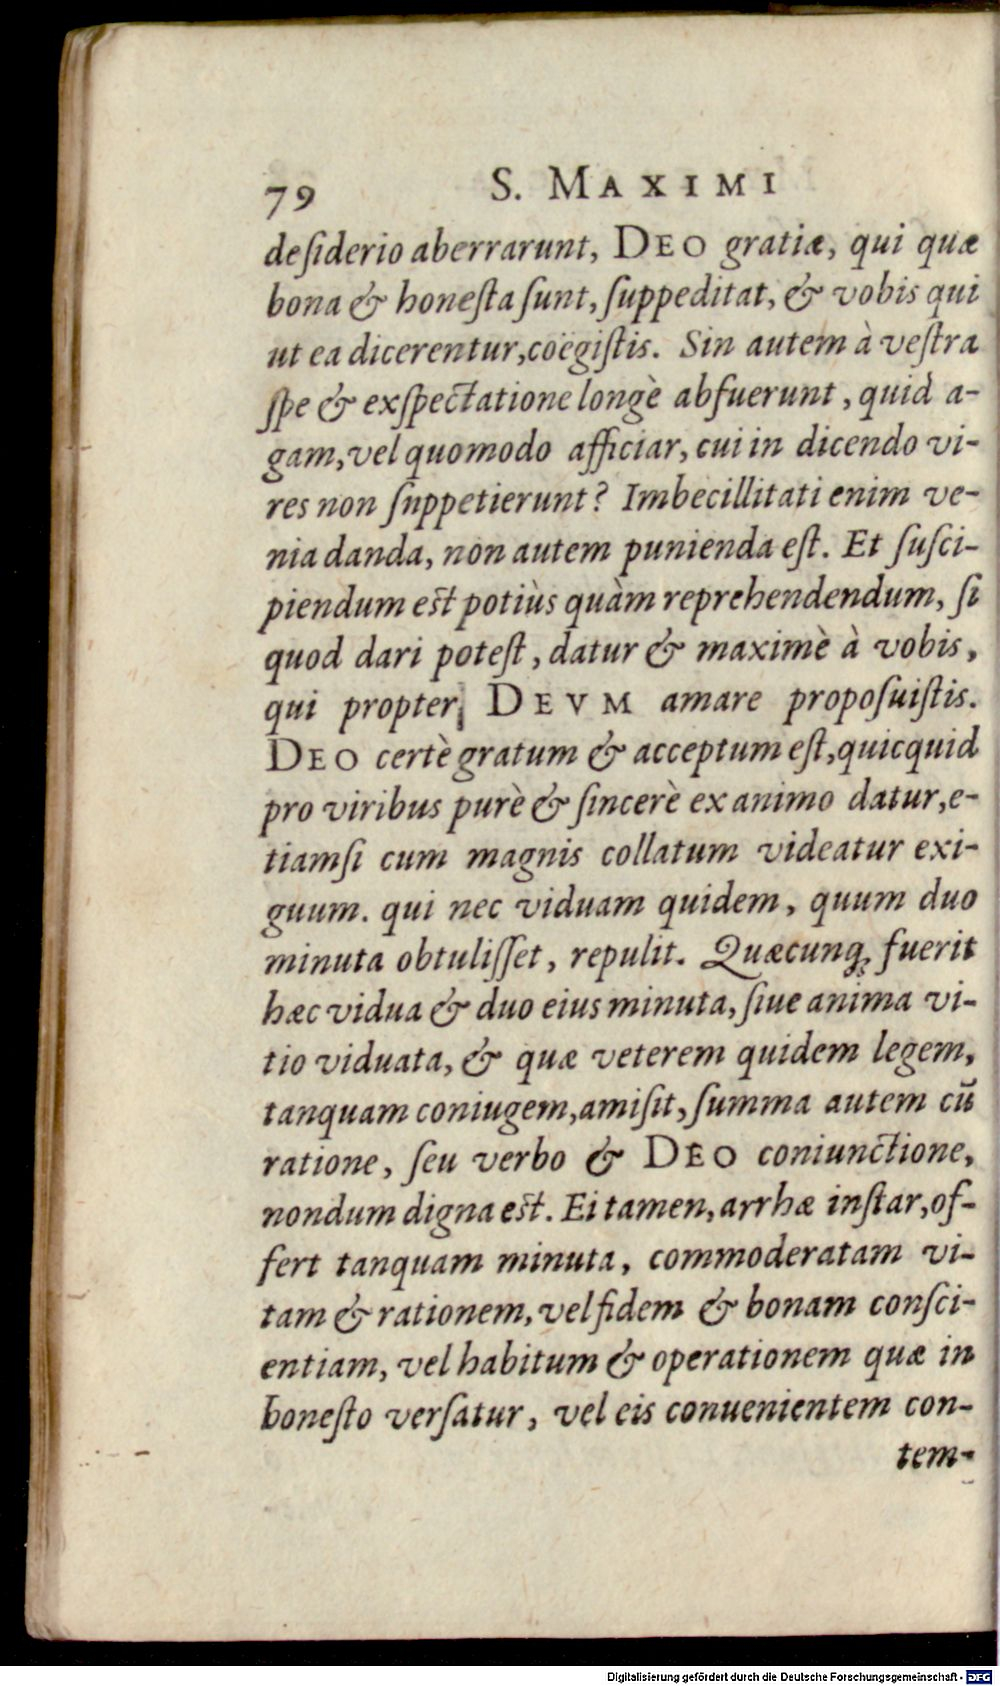 79 S. MAXIMI
deſiderio aberrarunt, DEO gratiæ, qui quæ
bona & honeſta ſunt, ſuppeditat, & vobis qui
ut ea dicerentur, coëgiſtis. Sin autem à veſtra
ſpe & exſpectatione longè abfuerunt, quid a-
gam, vel quomodo afficiar, cui in dicendo vi-
res non ſnppetierunt? Imbecillitati enim ve-
nia danda, non autem punienda eſt. Et ſuſci-
piendum eſt potiùs quàm reprehendendum, ſi
quod dari poteſt, datur & maximè à vobis,
qui propter DEVM amare propoſuiſtis.
DEO certè gratum & acceptum eſt, quicquid
pro viribus purè & ſincerè ex animo datur, e-
tiamſi cum magnis collatum videatur exi-
guum. qui nec viduam quidem, quum duo
minuta obtuliſſet, repulit. Quæcunq; fuerit
hæc vidua & duo eius minuta, ſiue anima vi-
tio viduata, & quæ veterem quidem legem,
tanquam coniugem, amiſit, ſumma autem cū
ratione, ſeu verbo & DEO coniunctione,
nondum digna eſt. Ei tamen, arrhæ inſtar, of-
fert tanquam minuta, commoderatam vi-
tam & rationem, vel fidem & bonam conſci-
entiam, vel habitum & operationem quæ in
honeſto verſatur, vel eis conuenientem con-
tem-
Digitalisierung gefördert durch die Deutsche Forschungsgemeinschaft - DFG